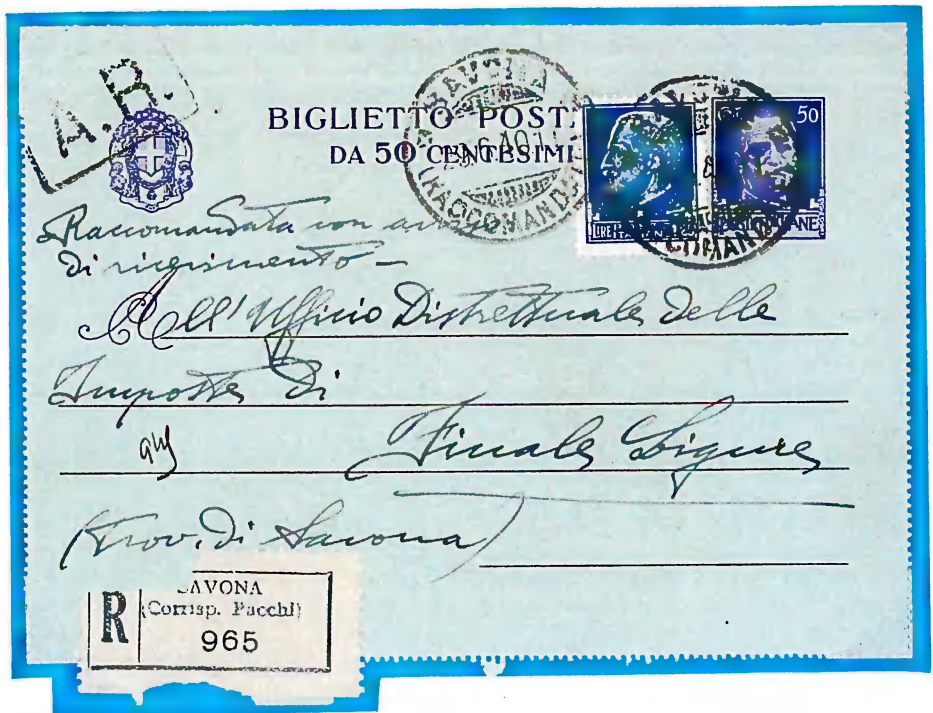 A.R.
BIGLIETTO POST
DA 50 CENTESIMI
50
SAVONA
6.40
(RACCOMANDA
LIRE
Raccomandata con avviso
di ricevimento -
All' Ufficio Distrettuale delle
Imposte di
Finale Ligure
(Prov. di Savona)
R
SAVONA
(Corrisp. Pacchi)
965